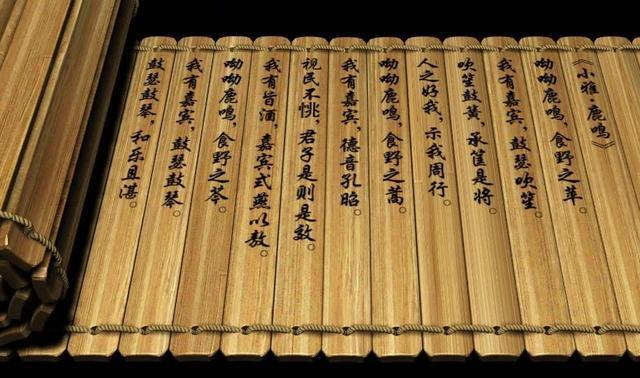 《小雅·鹿鸣》
呦呦鹿鸣，食野之苹。
我有嘉宾，鼓瑟吹笙。
吹笙鼓簧，承筐是将。
人之好我，示我周行。
呦呦鹿鸣，食野之蒿。
我有嘉宾，德音孔昭。
视民不恌，君子是则是效。
我有旨酒，嘉宾式燕以敖。
呦呦鹿鸣，食野之芩。
我有嘉宾，鼓瑟鼓琴。
鼓瑟鼓琴，和乐且湛。